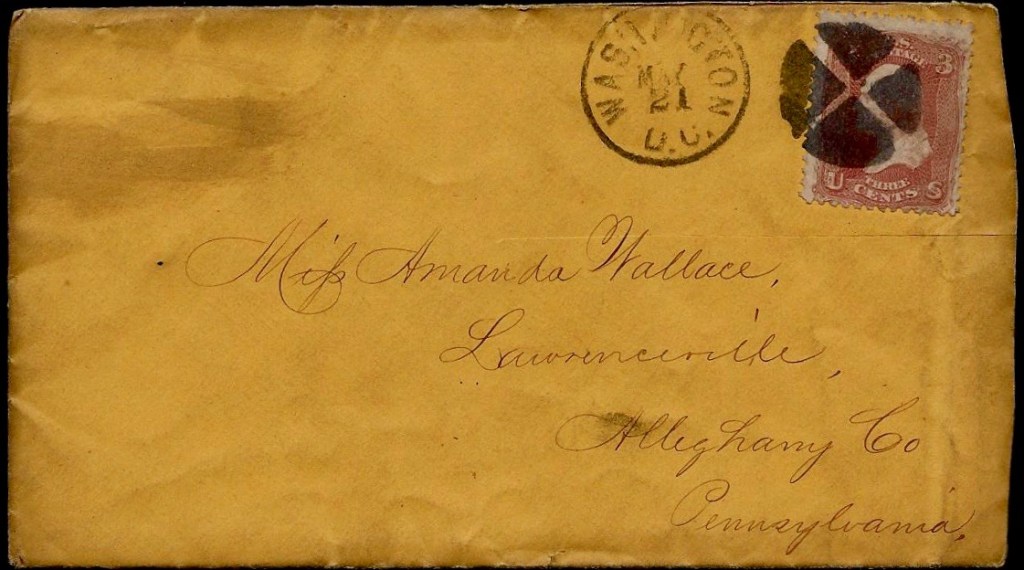 WASHINGTON
21
D.C.
3
THREE
U CENTS S
Miss Amanda Wallace,
Lawrenceville,
Alleghany Co
Pennsylvania,